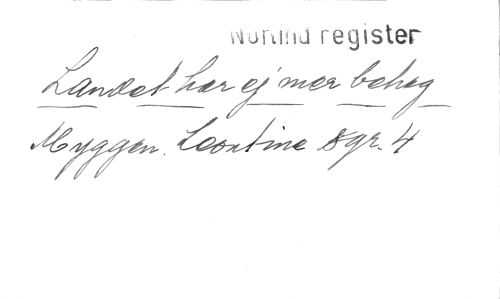 Norlind register
Landet har ej mer behag
Myggen. Leontine Sgr. 4